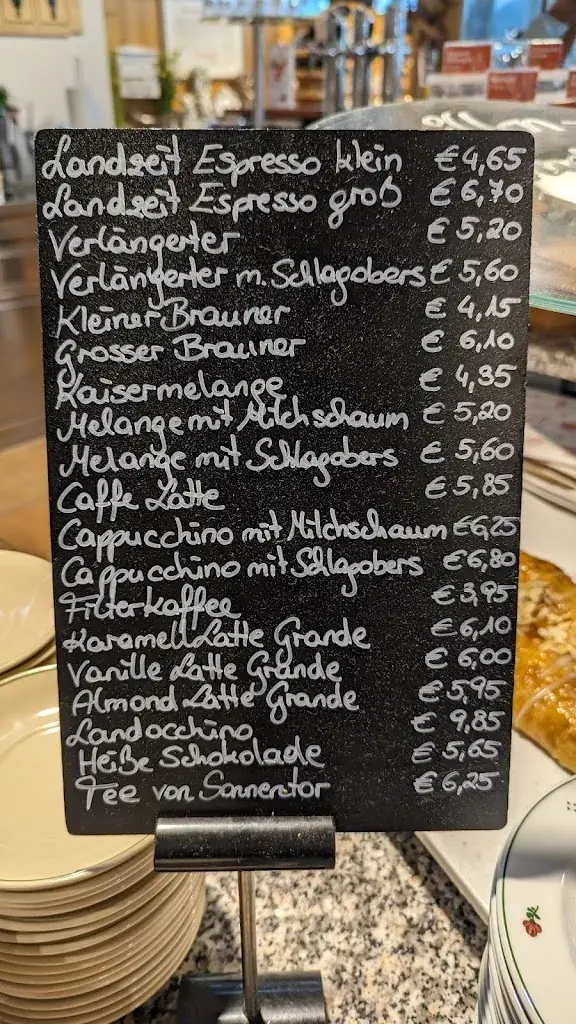 Landzeit Espresso klein € 4,65
Landzeit Espresso groß € 6,70
Verlängerter € 5,20
Verlängerter m. Schlagobers € 5,60
Kleiner Brauner € 4,15
Grosser Brauner € 6,10
Kaisermelange € 4,35
Melange mit Milchschaum € 5,20
Melange mit Schlagobers € 5,60
Caffe Latte € 5,85
Cappucchino mit Milchschaum € 6,25
Cappucchino mit Schlagobers € 6,80
Filterkaffee € 3,95
Karamell Latte Grande € 6,10
Vanille Latte Grande € 6,00
Almond Latte Grande € 5,95
Landocchino € 9,85
Heiße Schokolade € 5,65
Tee von Sonnentor € 6,25